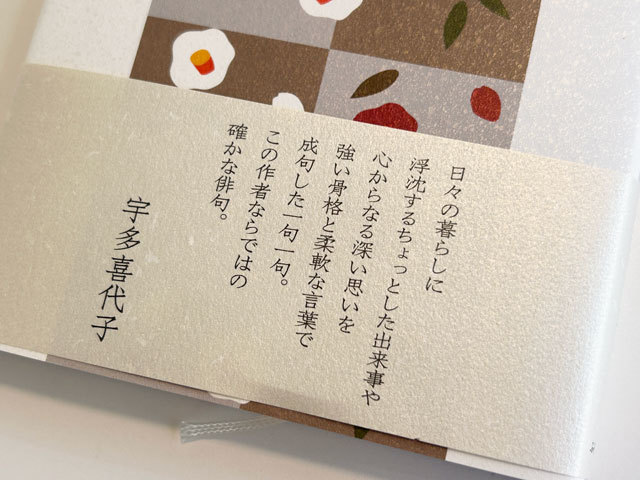 日々の暮らしに
浮沈するちょっとした出来事や
心からなる深い思いを
強い骨格と柔軟な言葉で
成句した一句一句。
この作者ならではの
確かな俳句。
宇多喜代子